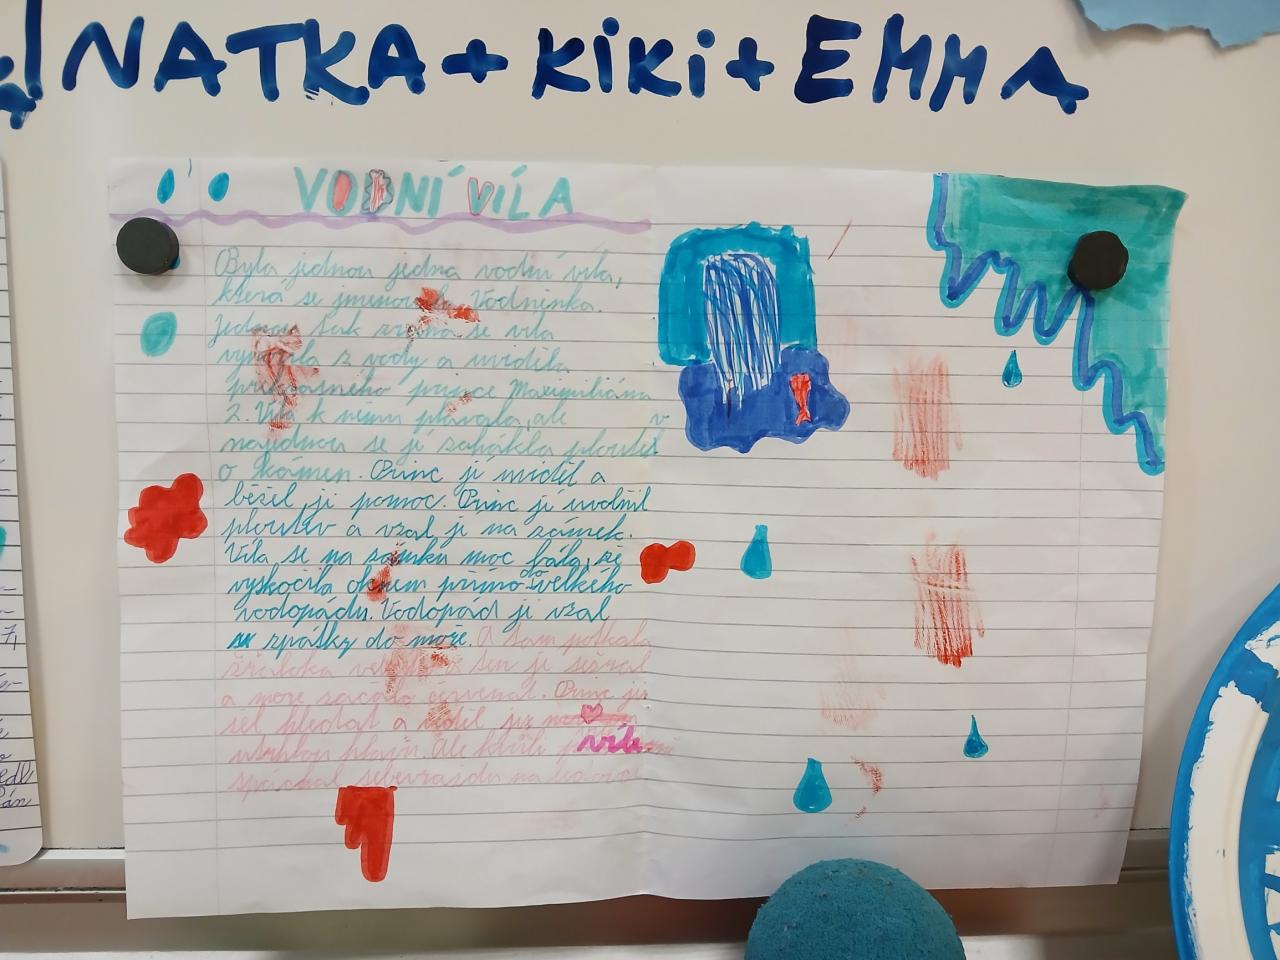 NATKA + KiKi + EMMA
VODNÍ VÍLA
Byla jednou jedna vodní víla,
která se jmenovala Vodněnka.
Jednou tak zrovna se víla
vynořila z vody a uviděla
překrásného prince Maximiliána
2. Víla k němu plavala, ale v
najednou se jí zasákla ploutev
o kámen. Princ jí uviděl a
běžel jí pomoc. Princ jí uvolnil
ploutev a vzal jí na zámek.
Víla se na zámku moc bála, že
vyskočila oknem přímo do velkého
vodopádu. Vodopád jí vzal
zpátky do moře. A tam potkala
žraloka a ten jí sežral
a moře začalo červenat. Princ jí
šel hledat a viděl jen
ploutev. Ale kvůli víle
spáchal sebevraždu